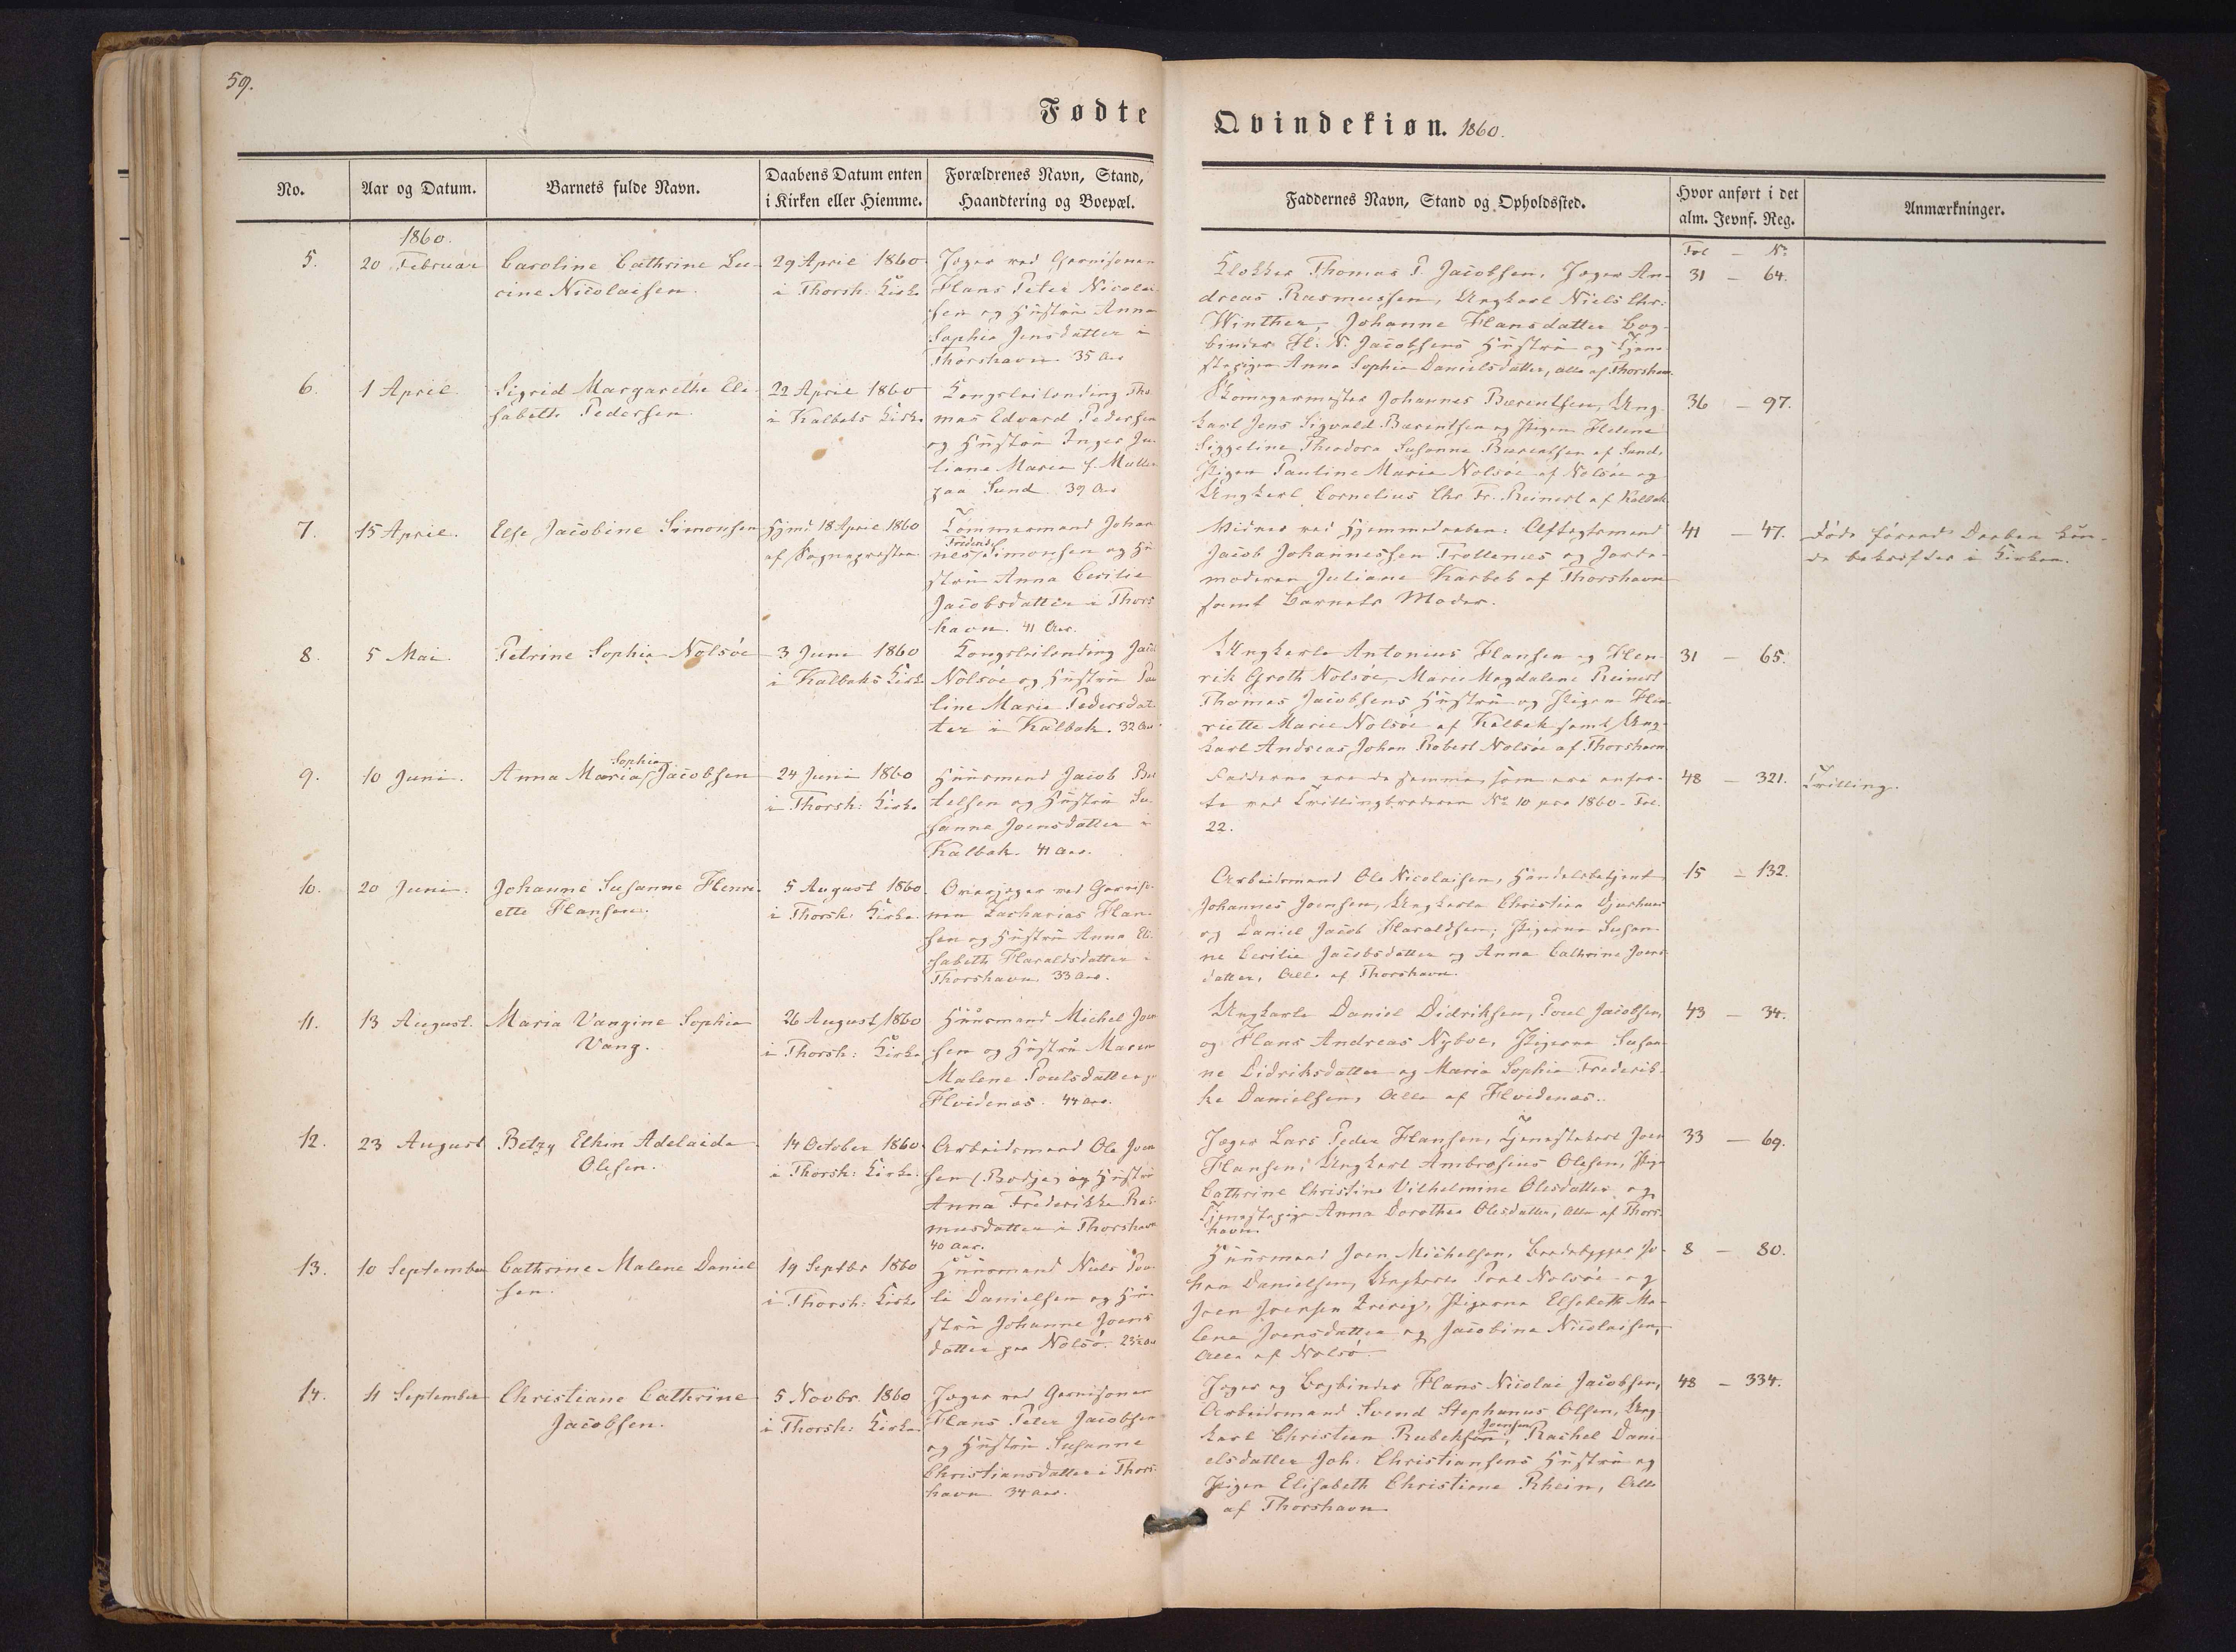 59.
Fødte
Qvindekiøn. 1860.
No.
Aar og Datum.
Barnets fulde Navn.
Daabens Datum enten
i Kirken eller Hiemme.
Forældrenes Navn, Stand,
Haandtering og Boepæl.
Faddernes Navn, Stand og Opholdssted.
Hvor anført i det
alm. Jevnf. Reg.
Anmærkninger.
1860.
Fol — No
5.
20 Februar
Caroline Cathrine Lu-
cine Nicolaisen.
29 April 1860
i Thorsh: Kirke
Jæger ved Garnisonen
Hans Peter Nicolai-
sen og Hustru Anna
Sophia Jensdatter i
Thorshavn. 35 Aar
Klokker Thomas P. Jacobsen, Jæger An-
dreas Rasmussen, Ungkarl Niels Chr:
Winther, Johanne Hansdatter Bog-
binder H: N. Jacobsens Hustru og Tjene-
stepige Anna Sophia Danielsdatter, alle af Thorshavn
31 — 64.
6.
1 April
Sigrid Margarethe Eli-
sabeth Pedersen.
22 April 1860
i Kalbaks Kirke
Kongsleilending Tho-
mas Edvard Pedersen
og Hustru Inger Ju-
liane Maria f. Müller
paa Sund. 39 Aar
Skomagermester Johannes Bærentsen, Ung-
karl Jens Sigvald Bærentsen og Pigen Helene
Siggeline Theodora Susanne Bærentsen af Sund,
Pigen Pauline Marie Nolsöe af Nolsöe og
Ungkarl Cornelius Chr. Fr. Reinert af Kalbak
36 — 97.
7.
15 April.
Else Jacobine Simonsen
Hjmd 18 April 1860
af Sognepræsten
Tømmermand Johan-
Frederik
nes Simonsen og Hu-
stru Anna Cecilie
Jacobsdatter i Thors-
havn. 41 Aar.
Vidner ved Hjemmedaaben: Aftægtsmand
Jacob Johannessen Trøllenæs og Jorde-
moderen Juliane Karbek af Thorshavn
samt Barnets Moder.
41 — 47.
Døde førend Daaben kun-
de bekræftes i Kirken.
8.
5 Mai
Petrine Sophie Nolsöe
3 Juni 1860
i Kalbaks Kirke
Kongsleilending Jacob
Nolsöe og Hustru Pau-
line Marie Pedersdat-
ter i Kalbak. 32 Aar
Ungkarle Antonius Hansen og Hen-
rik Groth Nolsöe, Marie Magdalene Reinert
Thomas Jacobsens Hustru og Pigen Hen-
riette Marie Nolsöe af Kalbak samt Ung-
karl Andreas Johan Robert Nolsöe af Thorshavn
31 — 65.
9.
10 Juni.
Sophia
Anna Maria Jacobsen
24 Juni 1860
i Thorsh: Kirke
Huusmand Jacob Ber-
telsen og Hustru Su-
sanne Joensdatter i
Kalbak. 41 Aar.
Fadderne ere de samme, som ere anfør-
te ved Tvillingbroderen No 10 pro 1860 - Fol.
22.
48 — 321.
Tvilling.
10.
20 Juni.
Johanne Susanne Henri-
ette Hansen.
5 August 1860
i Thorsh: Kirke
Overjæger ved Garniso-
nen Zacharias Han-
sen og Hustru Anna Eli-
sabeth Haraldsdatter i
Thorshavn. 33 Aar.
Arbeidsmand Ole Nicolaisen, Handelsbetjent
Johannes Joensen, Ungkarle Christian Djurhuus
og Daniel Jacob Haraldsen, Pigerne Susan-
ne Cecilie Jacobsdatter og Anna Cathrine Joens-
datter, Alle af Thorshavn.
15 — 132.
11.
13 August.
Maria Vangine Sophia
Vang.
26 August 1860
i Thorsh: Kirke
Huusmand Michel Joen-
sen og Hustru Maren
Malene Poulsdatter
Hvidenæs. 44 Aar.
Ungkarle Daniel Didriksen, Poul Jacobsen,
og Hans Andreas Nyboe, Pigerne Susan-
ne Didriksdatter og Maria Sophia Frederik-
ke Danielsen, Alle af Hvidenæs.
43 — 34.
12.
23 August
Betzy Elkin Adelaide
Olesen.
14 October 1860
i Thorsh: Kirke.
Arbeidsmand Ole Joen-
sen (Bodje) og Hustru
Anna Frederikke Ras-
musdatter i Thorshavn
40 Aar.
Jæger Lars Peder Hansen, Tjenestekarl Joen
Hansen, Ungkarl Ambrosius Olesen, Pige
Cathrine Christine Vilhelmine Olesdatter og
Tjenestepige Anna Dorothea Olesdatter, Alle af Thors-
havn.
33 — 69.
13.
10 September
Cathrine Malene Daniel-
sen.
19 Septbr 1860
i Thorsh: Kirke
Huusmand Niels Pou-
li Danielsen og Hu-
stru Johanne Joens-
datter paa Nolsö.
Huusmand Joen Michelsen, Baadebygger Jo-
han Danielsen, Ungkarle Poul Nolsöe og
Joen Joensen, Pigerne Elsebeth Ma-
lene Joensdatter og Jacobine Nicolaisen,
Alle af Nolsö.
8 — 80.
14.
4 September
Christiane Cathrine
Jacobsen.
5 Novbr. 1860
i Thorsh: Kirke
Jæger ved Garnisonen
Hans Peter Jacobsen
og Hustru Susanne
Christiansdatter i Thors-
havn 34 Aar.
Jæger og Bogbinder Hans Nicolai Jacobsen,
Arbeidsmand Svend Stephanus Olsen, Ung-
Joensen
karl Christian Rubeksen, Rachel Dani-
elsdatter Joh: Christiansens Hustru og
Pigen Elisabeth Christiane Rhein, Alle
af Thorshavn
48 — 334.